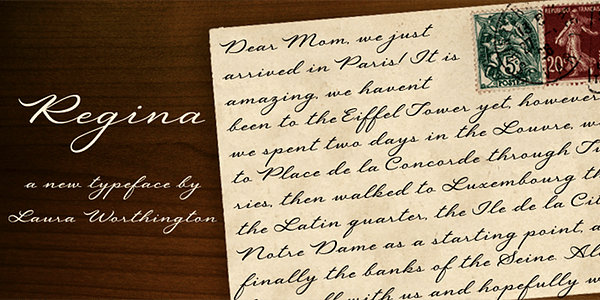 Regina
a new typeface by
Laura Worthington
Dear Mom, we just
arrived in Paris! It is
amazing, we haven't
been to the Eiffel Tower yet, however
we spent two days in the Louvre, w
to Place de la Concorde through Tu
ries, then walked to Luxembourg th
the Latin quarter, the Ile de la Ci
Notre Dame as a starting point, a
finally the banks of the Seine. Al
with us and hopefully w
5
20